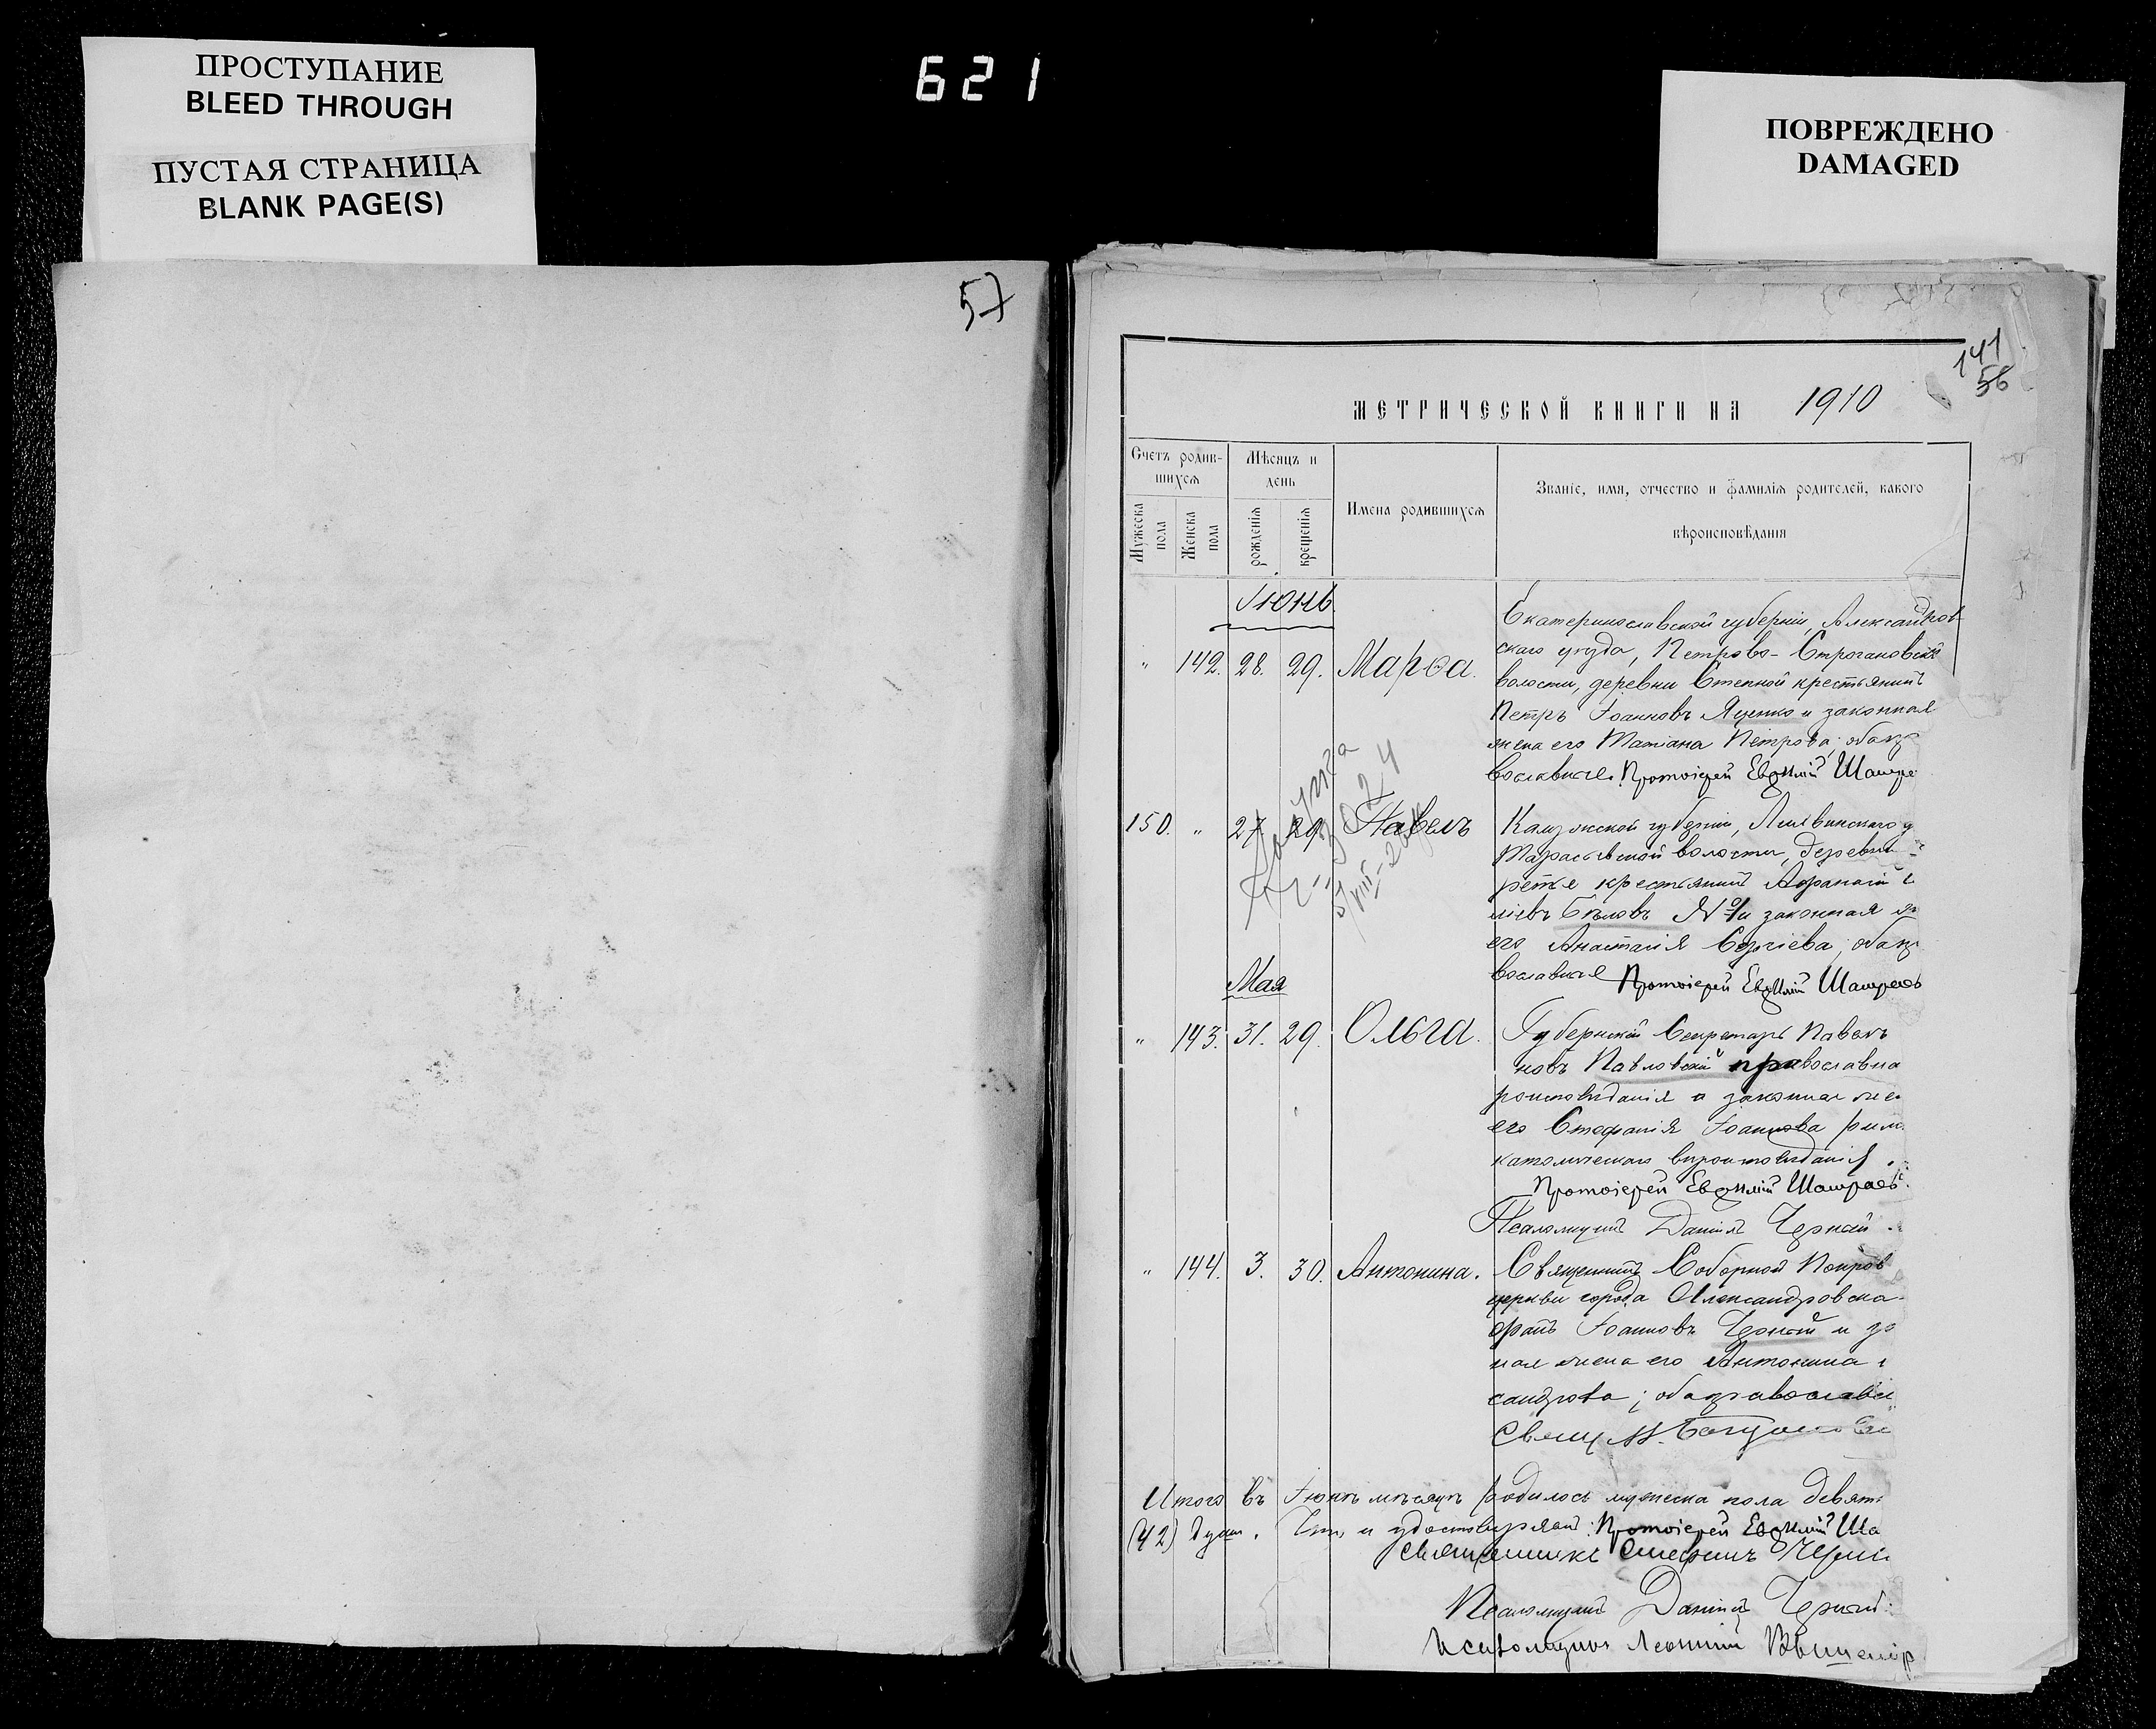 ПРОСТУПАНИЕ
BLEED THROUGH
ПУСТАЯ СТРАНИЦА
BLANK PAGE(S)
621
ПОВРЕЖДЕНО
DAMAGED
57
141
56
МЕТРИЧЕСКОЙ КНИГИ НА 1910
Счетъ родив-
шихся
Мужеска
пола
Женска
пола
Мѣсяцъ и
день
рожденія
крещенія
Имена родившихся
Званіе, имя, отчество и фамилія родителей, какого
вѣроисповѣданія
Іюнь
" 142. 28. 29. Марѳа.
Екатеринославской губерніи, Александров
скаго уѣзда, Петрово-Строгановской
волости, деревни Степной крестьянинъ
Петръ Іоанновъ Яценко и законная
жена его Татіана Петрова; оба пр
вославные. Протоіерей Евѳимій
150. " 27 29 Павелъ
Калужской губерніи, Лихвинскаго у
волости, деревни
крестьянинъ
Бѣловъ и законная ж
его Анастасія Сергіева, оба пр
вославные Протоіерей Евѳимій
Мая
" 143. 31. 29. Ольга.
Губернскій Секретарь Павелъ
новъ Павловскій православна
роисповѣданія и законная же
его Стефанія Іоаннова рим
католическаго вѣроисповѣданія.
Протоіерей Евѳимій
Псаломщикъ Даніилъ Черный
" 144. 3. 30. Антонина.
Священникъ Соборной Покров
церкви города Александровска
фанъ Іоанновъ Черный и за
ная жена его Антонина
сандрова; оба православн
Свящ.
Итого въ Іюнѣ мѣсяцѣ родилось мужеска пола девят
(42) душ. Что и удостовѣряемъ: Протоіерей Евѳимій Ша
священникъ Стефанъ Черны
Псаломщикъ Даніилъ Черный
Псаломщикъ Леонтій